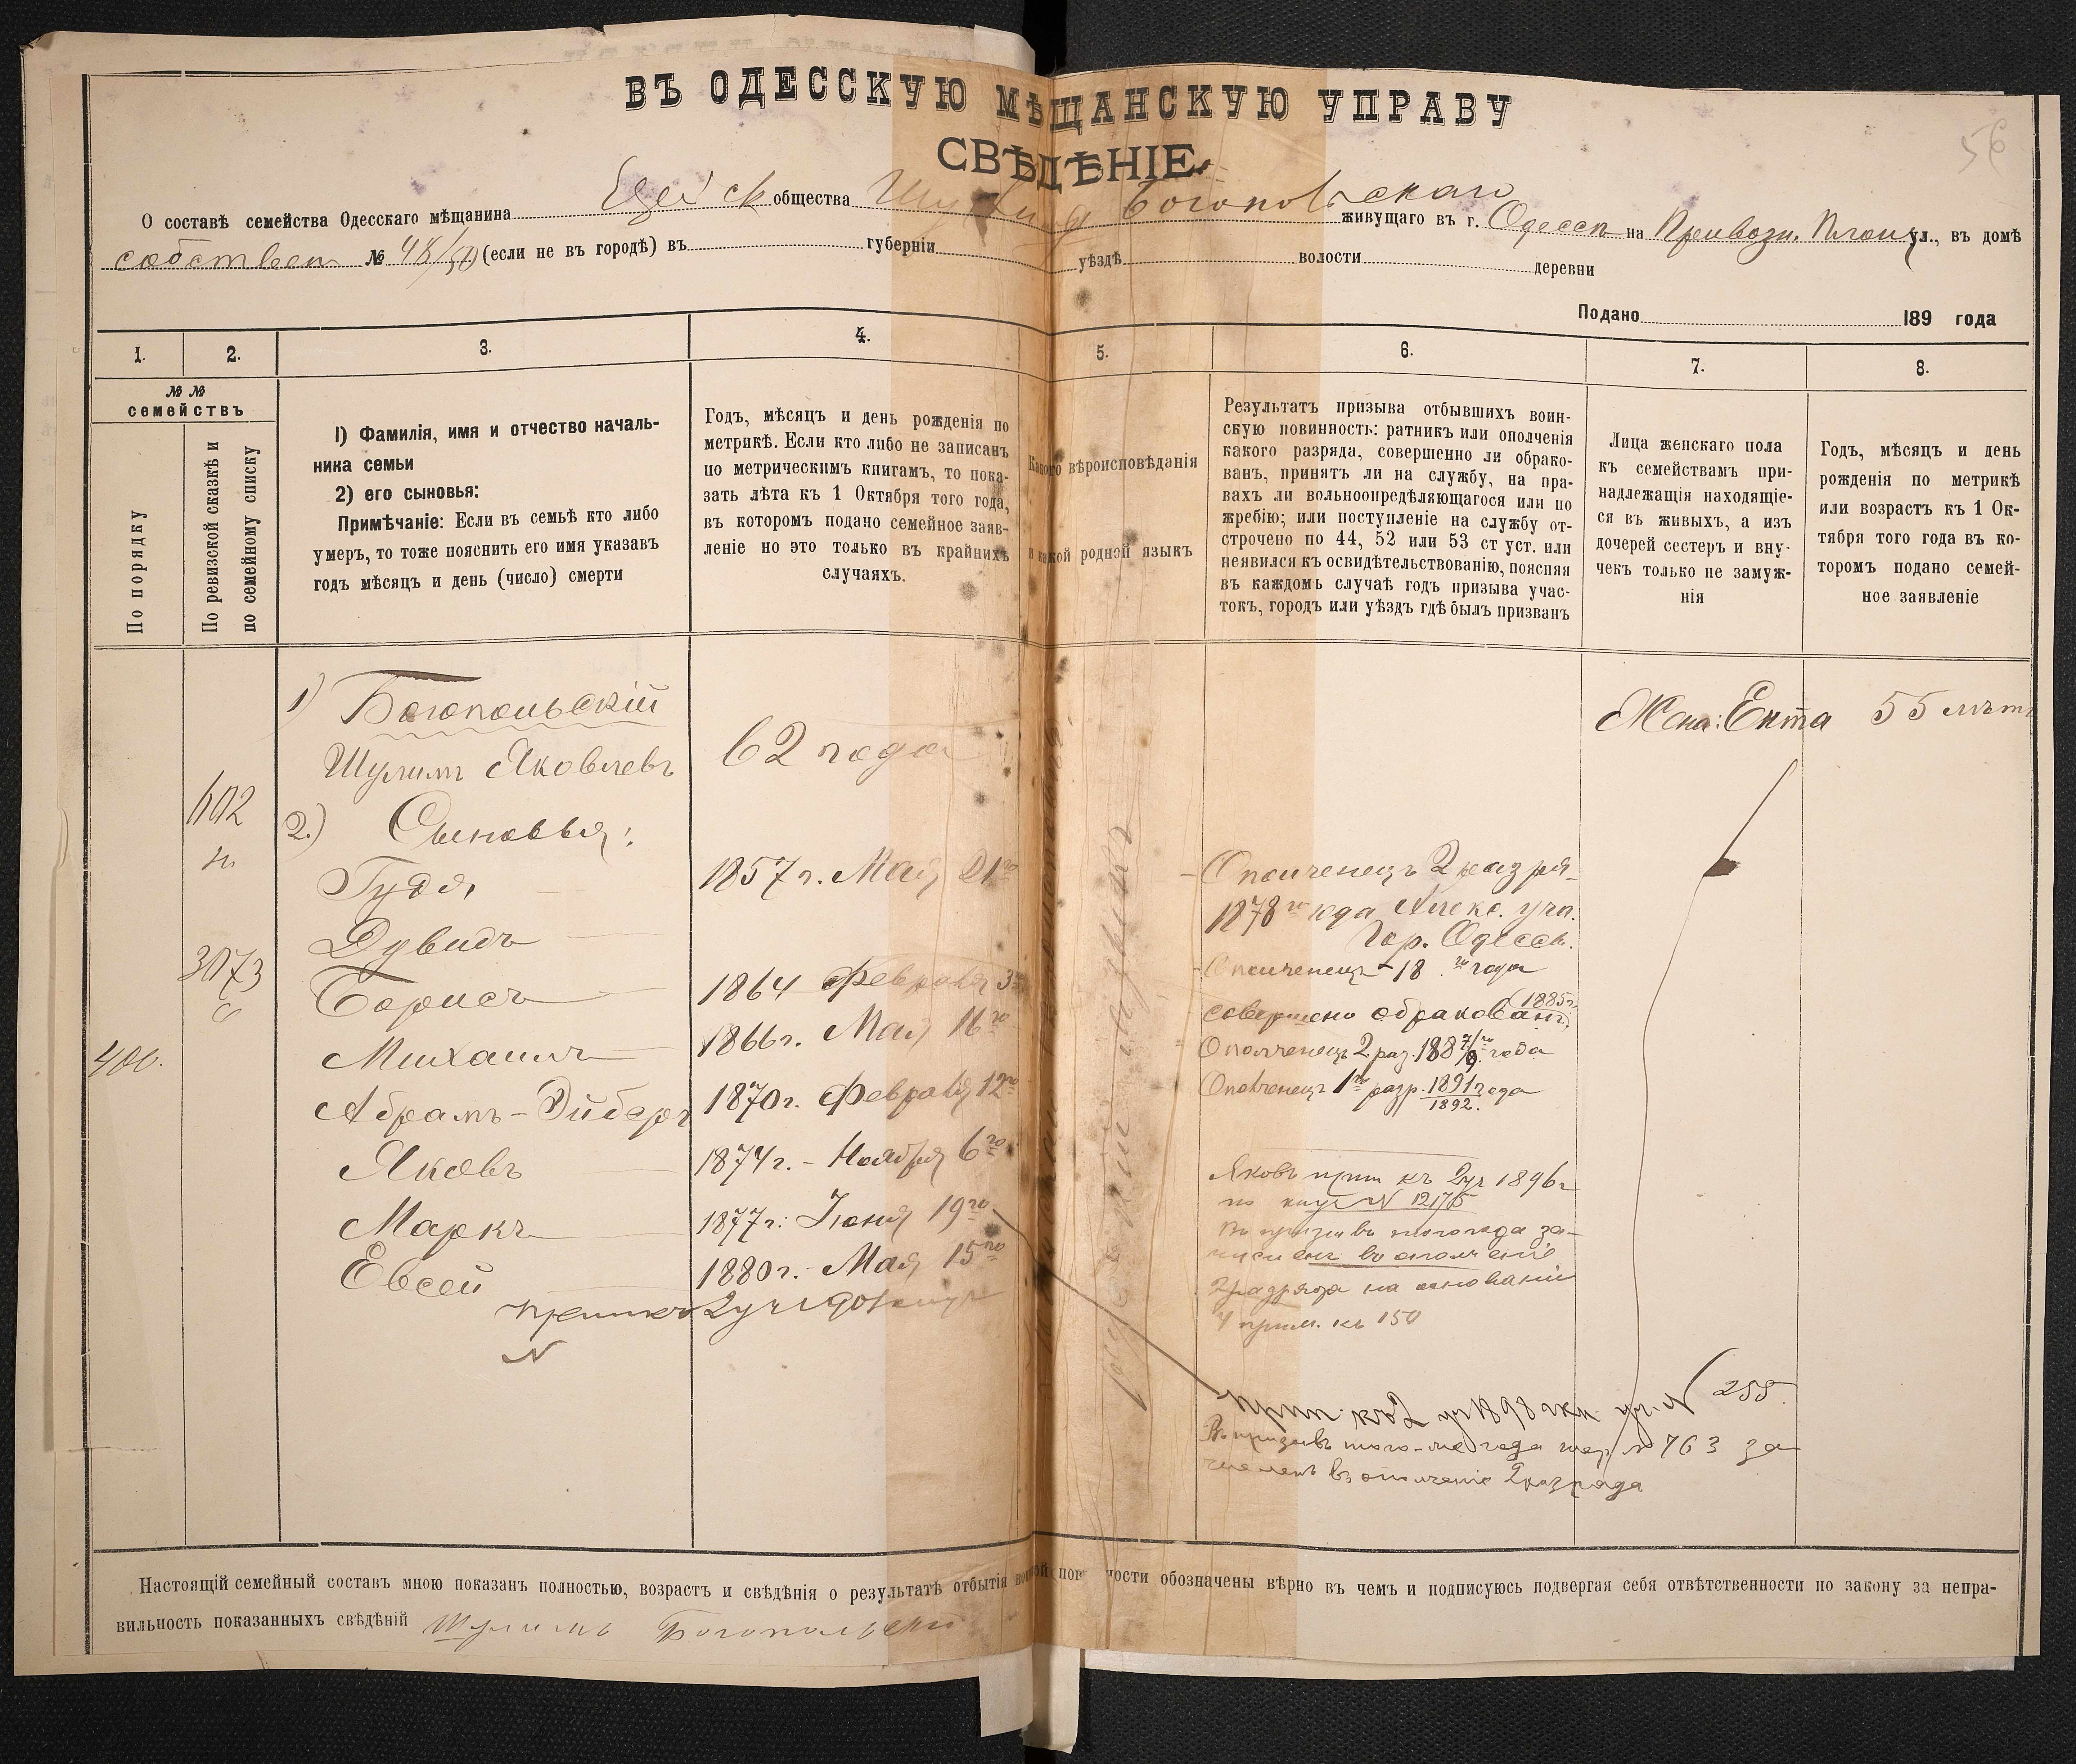 56
ВЪ ОДЕССКУЮ МѢЩАНСКУЮ УПРАВУ
СВѢДѢНІЕ.
О составѣ семейства Одесскаго мѣщанина общества Богопольскаго живущаго въ г. Одессѣ на Привозн. Площ ул., въ домѣ
собствен № 48/50 (если не въ городѣ) въ губерніи уѣздѣ волости деревни
Подано 189 года
1. 2. 3. 4. 5. 6. 7. 8.
№ №
семействъ
По порядку
По ревизской сказкѣ и
по семейному списку
I) Фамилія, имя и отчество началь-
ника семьи
2) его сыновья:
Примѣчаніе: Если въ семьѣ кто либо
умеръ, то тоже пояснить его имя указавъ
годъ мѣсяцъ и день (число) смерти
Годъ, мѣсяцъ и день рожденія по
метрикѣ. Если кто либо не записанъ
по метрическимъ книгамъ, то пока-
зать лѣта къ 1 Октября того года,
въ которомъ подано семейное заяв-
леніе но это только въ крайнихъ
случаяхъ.
Какого вѣроисповѣданія
и какой родной языкъ
Результатъ призыва отбывшихъ воин-
скую повинность: ратникъ или ополченія
какого разряда, совершенно ли обрако-
ванъ, принятъ ли на службу, на пра-
вахъ ли вольноопредѣляющагося или по
жребію; или поступленіе на службу от-
строчено по 44, 52 или 53 ст уст. или
неявился къ освидѣтельствованію, поясняя
въ каждомъ случаѣ годъ призыва учас-
токъ, городъ или уѣздъ гдѣ былъ призванъ
Лица женскаго пола
къ семействамъ при-
надлежащія находящіе-
ся въ живыхъ, а изъ
дочерей сестеръ и вну-
чекъ только не замуж-
нія
Годъ, мѣсяцъ и день
рожденія по метрикѣ
или возрастъ къ 1 Ок-
тября того года въ ко-
торомъ подано семей-
ное заявленіе
1) Богопольскій
Шулимъ Яковлевъ
62 года
Жена: Ента 55 лѣтъ
602
2.) Сыновья:
Гудя,
1857 г. Мая 21го
Ополченецъ 2 разря-
1878го года Алекс. уч.
Гор. Одессы.
Дувидъ
3073
Ополченецъ 18 го года
Борисъ
1864 Февраля 3
совершено обракованъ (1885г.)
Михаилъ
1866г. Мая 16го
Ополченецъ 2 раз. 1887/8го года
400.
Абрамъ-Эйберъ
1870г. Февраля 12го
Ополченецъ 1го разр. 1891/1892. года
Яковъ
1874г. - Ноября 6го
Яковъ прип къ 2уч 1896г
по N 12175
Въ призывъ того года за-
численъ въ ополченіе
2разряда на основаніи
4 прим. къ 150
Маркъ
1877г: Іюня 19го
Евсей
1880г. - Мая 15го
2уч 1901
N
прип. къ 2 уч 1898 N 255.
Въ призывъ того-же года жер N 763 за
численъ въ ополченіе 2разряда
Настоящій семейный составъ мною показанъ полностью, возрастъ и свѣдѣнія о результатѣ отбытія воинской повинности обозначены вѣрно въ чемъ и подписуюсь подвергая себя отвѣтственности по закону за непра-
вильность показанныхъ свѣдѣній Шулимъ Богопольскій